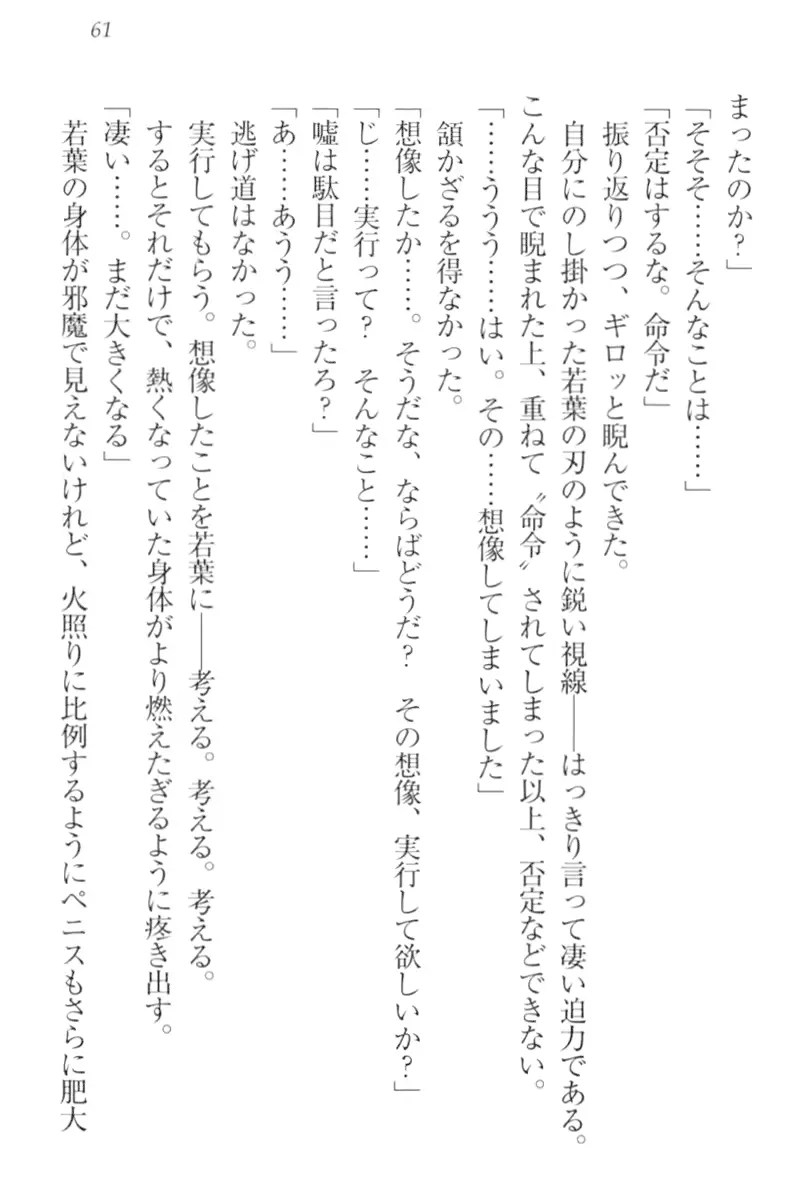 61
まったのか？」
「そそそ……そんなことは……」
「否定はするな。命令だ」
振り返りつつ、ギロッと睨んできた。
自分にのし掛かった若葉の刃のように鋭い視線――はっきり言って凄い迫力である。
こんな目で睨まれた上、重ねて〝命令〟されてしまった以上、否定などできない。
「……ううう……はい。その……想像してしまいました」
頷かざるを得なかった。
「想像したか……。そうだな、ならばどうだ？　その想像、実行して欲しいか？」
「じ……実行って？　そんなこと……」
「嘘は駄目だと言ったろ？」
「あ……あうう……」
逃げ道はなかった。
実行してもらう。想像したことを若葉に――考える。考える。考える。
するとそれだけで、熱くなっていた身体がより燃えたぎるように疼き出す。
「凄い……。まだ大きくなる」
若葉の身体が邪魔で見えないけれど、火照りに比例するようにペニスもさらに肥大